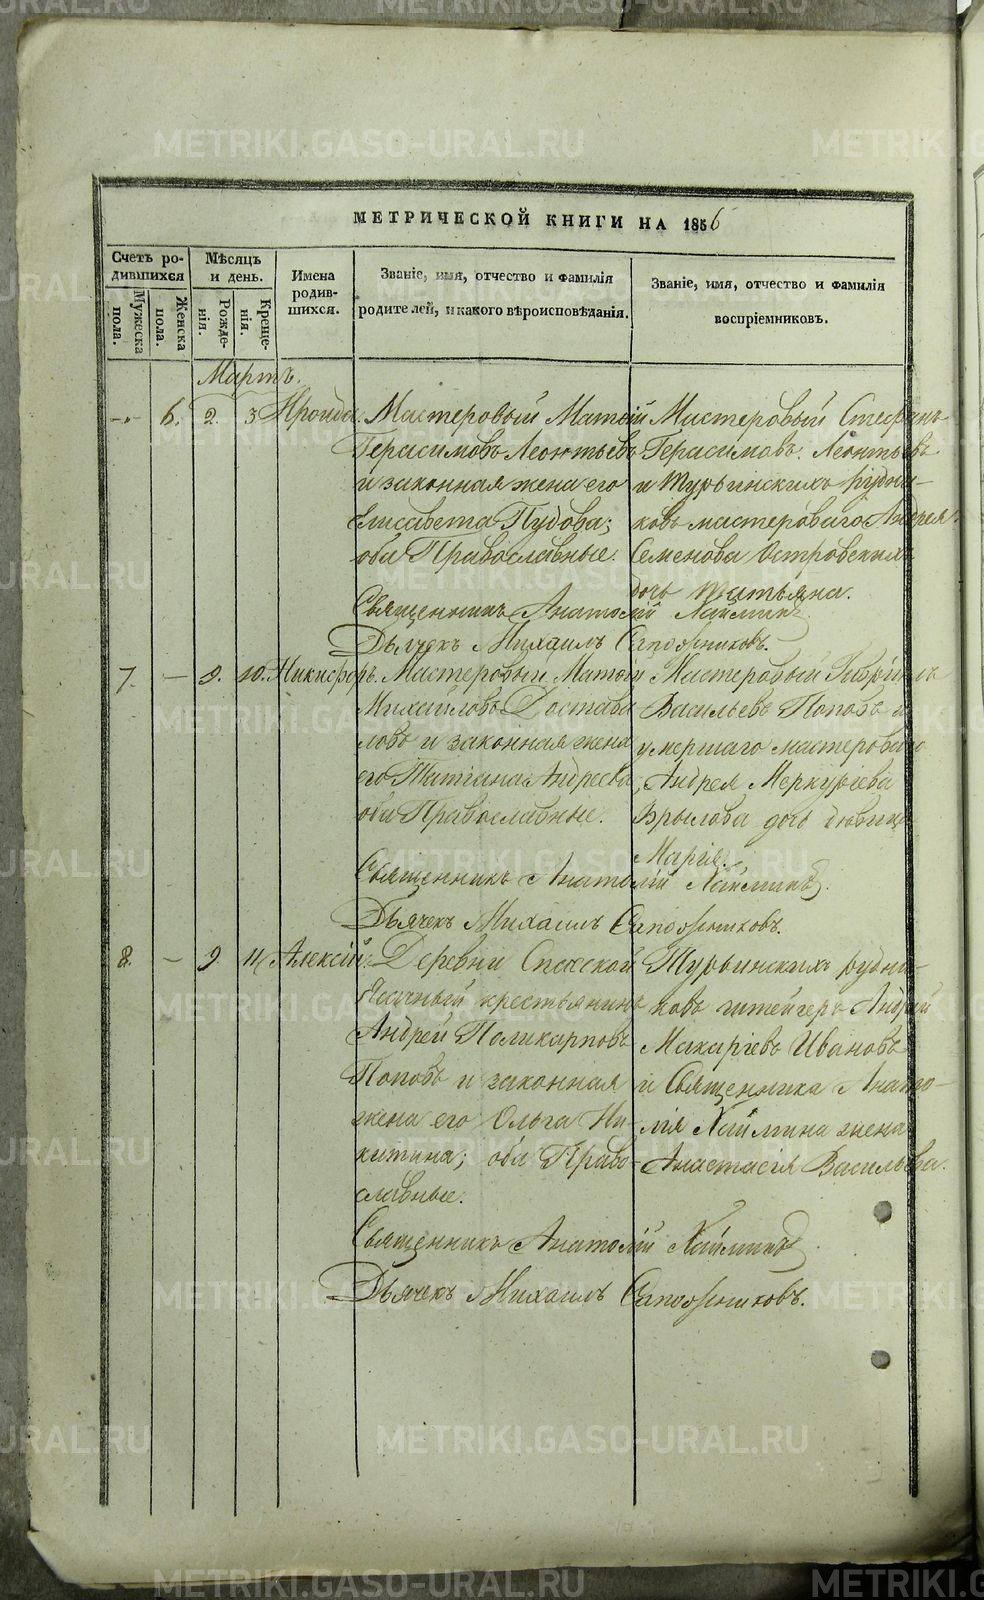 МЕТРИЧЕСКОЙ КНИГИ НА 1856
Счетъ родившихся
Мужеска пола.
Женска пола.
Мѣсяцъ и день.
Рожденія.
Крещенія.
Имена родившихся.
Званіе, имя, отчество и фамилія
родителей, и какого вѣроисповѣданія.
Званіе, имя, отчество и фамилія
воспріемниковъ.
Мартъ.
— 6. 2. 3 Ироида.
Мастеровый Матѳій
Герасимовъ Леонтьевъ
и законная жена его
Елисавета Пудова;
оба Православные.
Мастеровый Стефанъ
Герасимовъ Леонтьевъ
и Турьинскихъ Рудни-
ковъ мастероваго Андрея
Семенова Островскихъ
дочь Татьяна.
Священникъ Анатолій Хаймин
Дьячекъ Михаилъ Сапожниковъ.
7. — 9. 10. Никифоръ.
Мастеровый Матѳій
Михайловъ Достава
ловъ и законная жена
его Татіана Андреева
оба Православные.
Мастеровый Гавріилъ
Васильевъ Поповъ и
умершаго мастероваго
Андрея Меркурьева
дочь девица
Марія.
Священникъ Анатолій Хаймин
Дьячекъ Михаилъ Сапожниковъ.
8. — 9 11 Алексій.
Деревни
Ясачный крестьянинъ
Андрей Поликарповъ
Поповъ и законная
жена его Ольга Ни-
китина; оба Право-
славные.
Турьинскихъ рудни-
ковъ штейгеръ Андрей
Макаріевъ Ивановъ
и Священника Анато-
лія Хаймина жена
Анастасія Васильева.
Священникъ Анатолій Хаймин
Дьячекъ Михаилъ Сапожниковъ.
METRIKI.GASO-URAL.RU